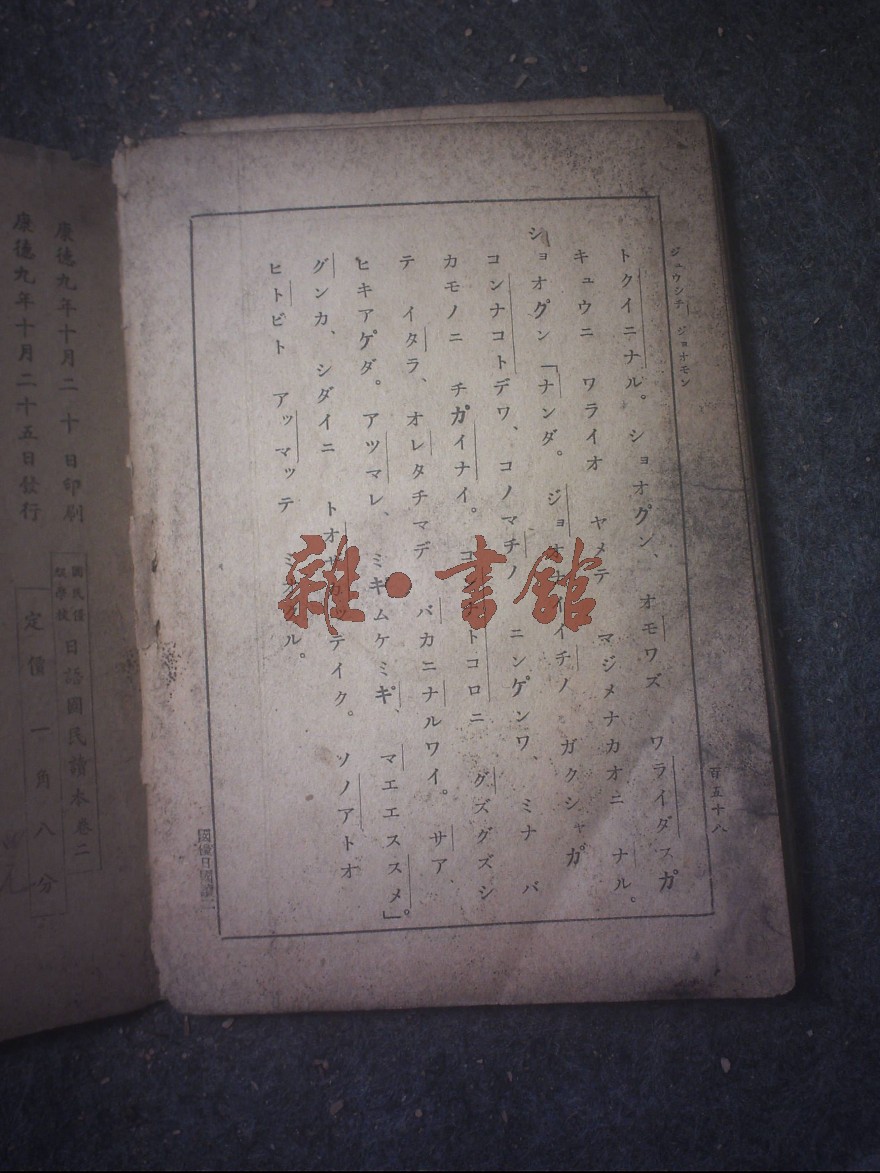 ジュウシチ ジョオモン
百五十八
トクイニナル。 ショオグン、 オモワズ ワライダスガ
キュウニ ワライオ ヤメテ マジメナカオニ ナル。
ショオグン 「ナンダ。 ジョオナイイチノ ガクシャガ
コンナコトデワ、 コノマチノ ニンゲンワ、 ミナ バ
カモノニ チガイナイ。 トコロニ グズグズシ
テ イタラ、 オレタチマデ バカニナルワイ。 サア
ヒキアゲダ。 アツマレ、 ミギムケミギ、 マエエススメ」。
グンカ、 シダイニ イク。 ソノアトオ
ヒトビト アッマッテ
國優日國讀二
康德九年十月二十日印刷
康德九年十月二十五日發行
國民優級學校 日語國民讀本 卷二
定價 一角八分
雜・書館